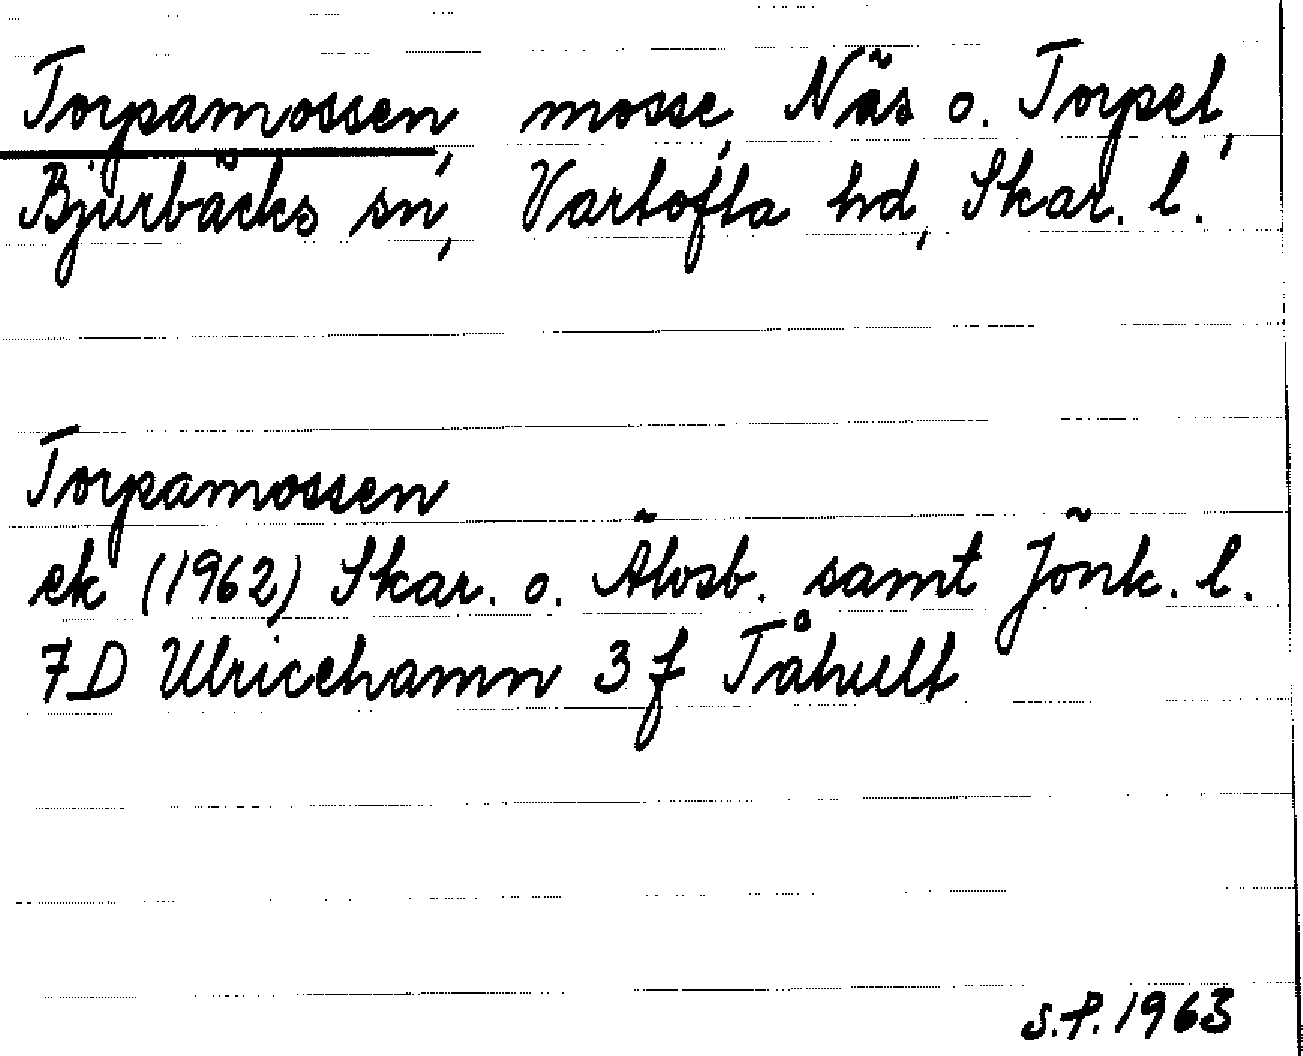 Torpamossen, mosse, Näs o. Torpet,
Bjurbäcks sn, Vartofta hd, Skar. l.
Torpamossen
ek (1962) Skar. o. Älvsb. samt Jönk. l.
7D Ulricehamn 3f Tåhult
S.P. 1963